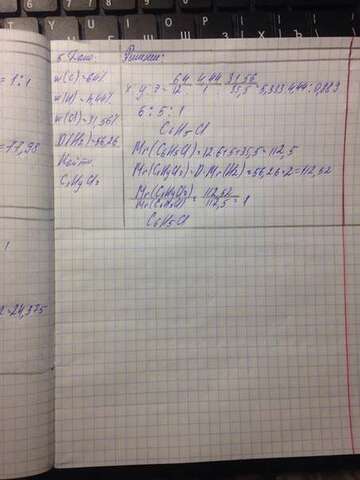 = 1 : 1
= 77,98
1
2 = 24,375
5. Дано:
w(C) = 64%
w(H) = 4,44%
w(Cl) = 31,56%
D(H2) = 56,26
Найти
CxHyClz
Решение:
x : y : z = 64/12 : 4,44/1 : 31,56/35,5 = 5,333 : 4,44 : 0,889
6 : 5 : 1
C6H5Cl
Mr(C6H5Cl) = 12·6+5+35,5 = 112,5
Mr(CxHyClz) = D·Mr(H2) = 56,26·2 = 112,52
Mr(CxHyClz)/Mr(C6H5Cl) = 112,52/112,5 = 1
C6H5Cl